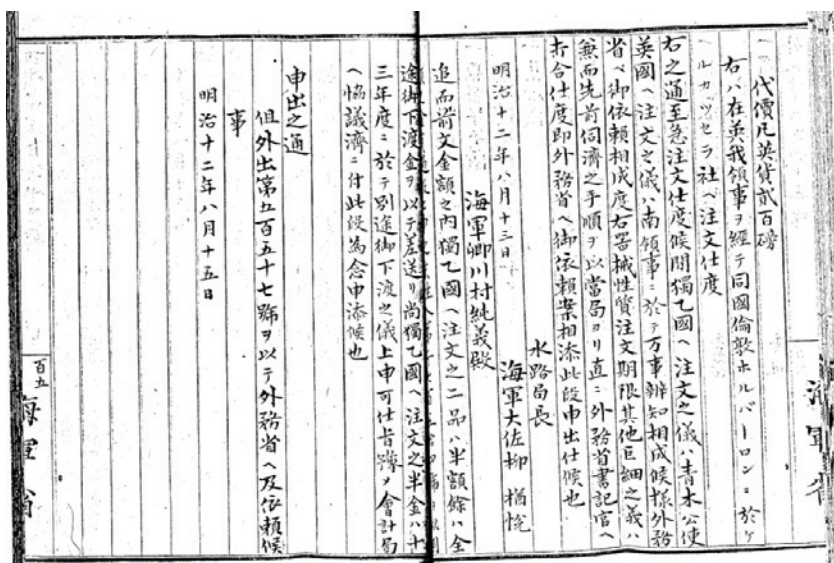 一 代價凡英貨貳百磅
右ハ在英我領事ヲ經テ同國倫敦ホルバーロンニ於ケ
ルカツセラ社ヘ注文仕度
右之通至急注文仕度候間獨乙國ヘ注文之儀ハ青木公使
英國ヘ注文之儀ハ南領事ニ於テ万事辨知相成候様外務
省ヘ御依頼相成度右器械性質注文期限其他巨細之義ハ
兼而先前伺濟之手順ヲ以當局ヨリ直ニ外務省書記官ヘ
打合仕度即外務省ヘ御依頼案相添此段申出仕候也
水路局長
明治十二年八月十三日 海軍大佐柳楢悦
海軍卿川村純義殿
追而前文金額之内獨乙國ヘ注文之二品ハ半額餘ハ全
途御下渡金ヲ以テ差送リ尚獨乙國ヘ注文之半金ハ十
三年度ニ於テ別途御下渡之儀上申可仕旨豫メ會計局
ヘ協議濟ニ付此段為念申添候也
申出之通
但外出第五百五十七號ヲ以テ外務省ヘ及依頼候
事
明治十二年八月十五日
百五
海軍省
海軍省